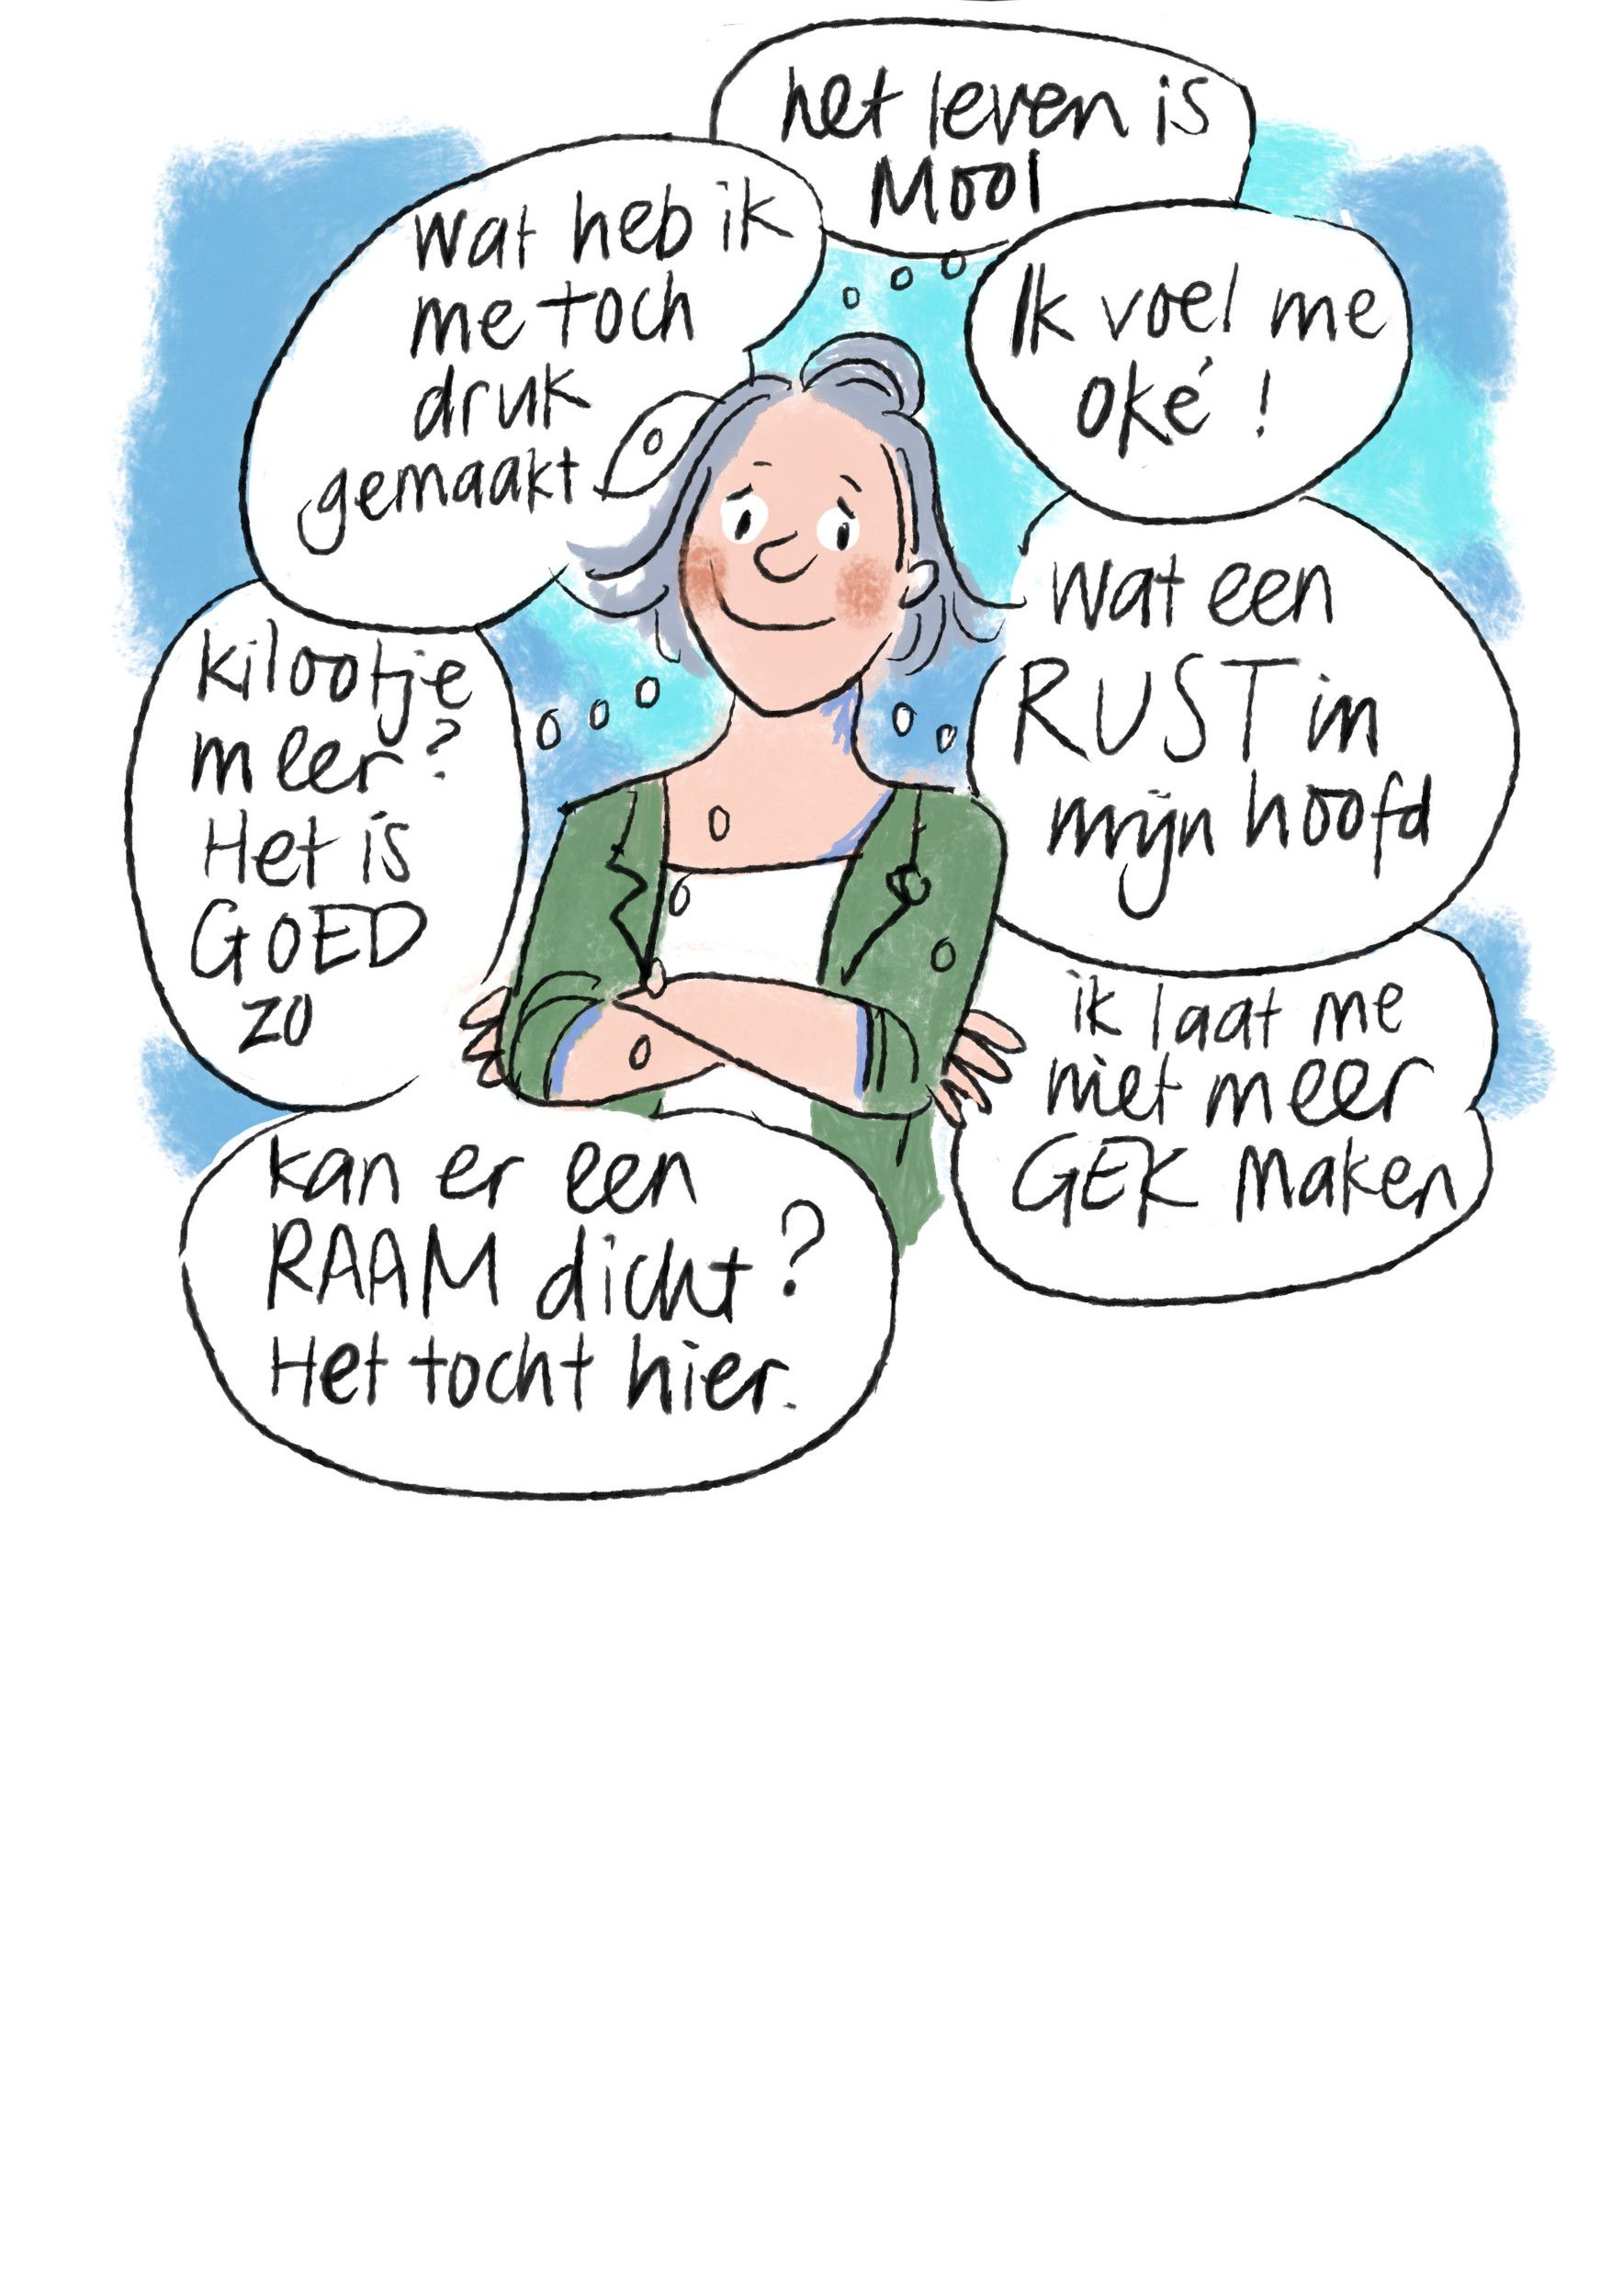 het leven is
Mooi
Wat heb ik
me toch
druk
gemaakt
Ik voel me
oké!
kilootje
meer?
Het is
GOED
zo
Wat een
RUST in
mijn hoofd
ik laat me
niet meer
GEK maken
kan er een
RAAM dicht?
Het tocht hier.